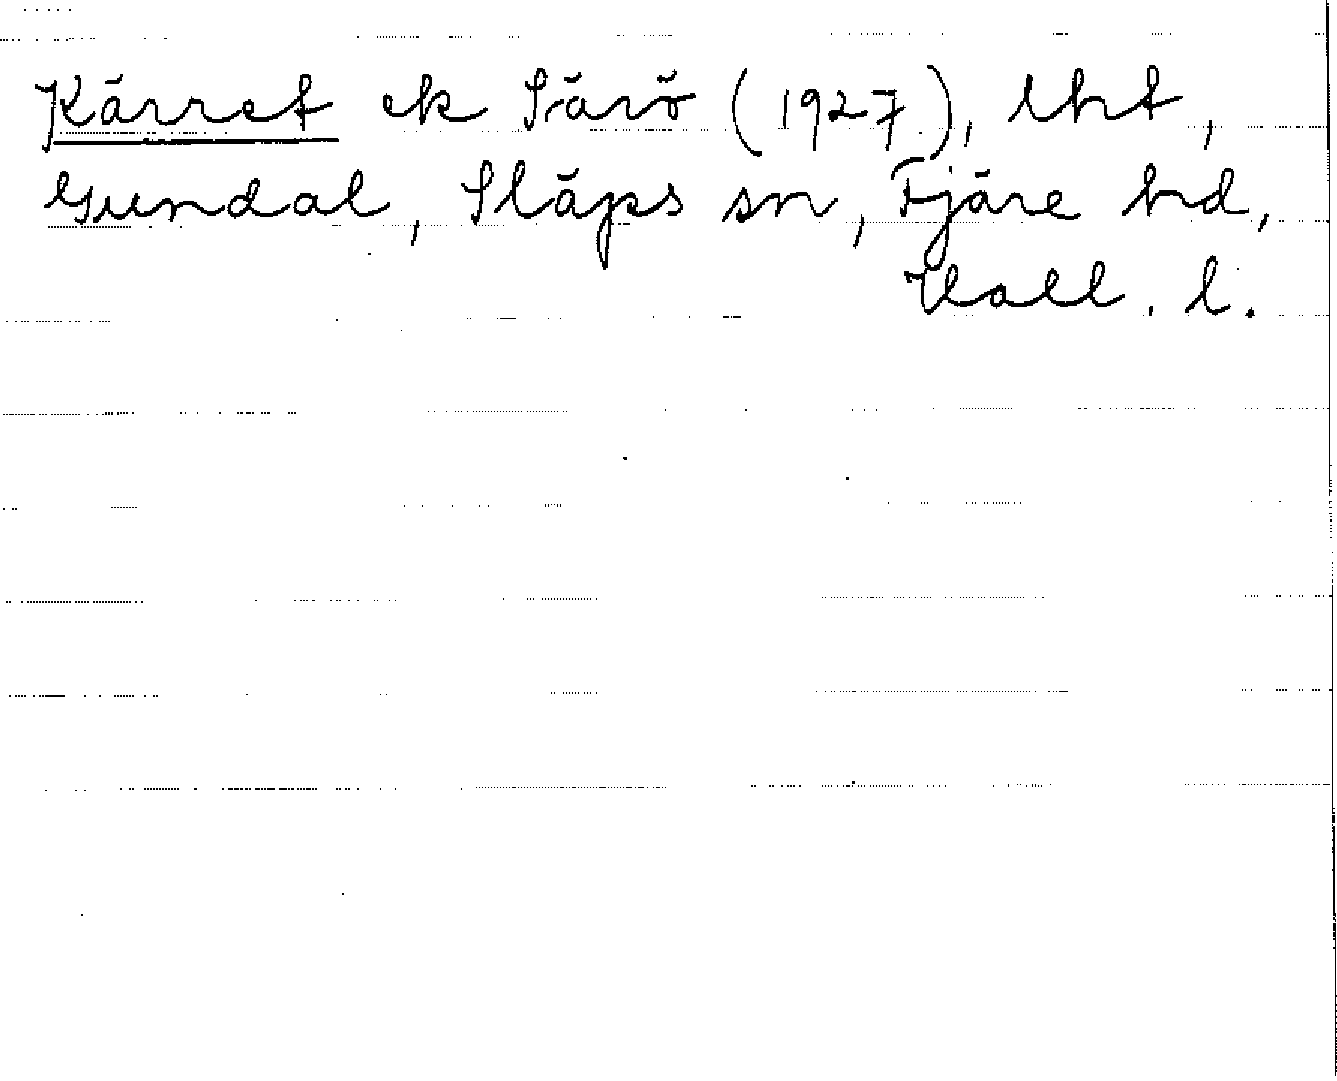 Kärret ek Särö (1927), lht,
Gundal, Släps sn, Fjäre hd,
Hall. l.